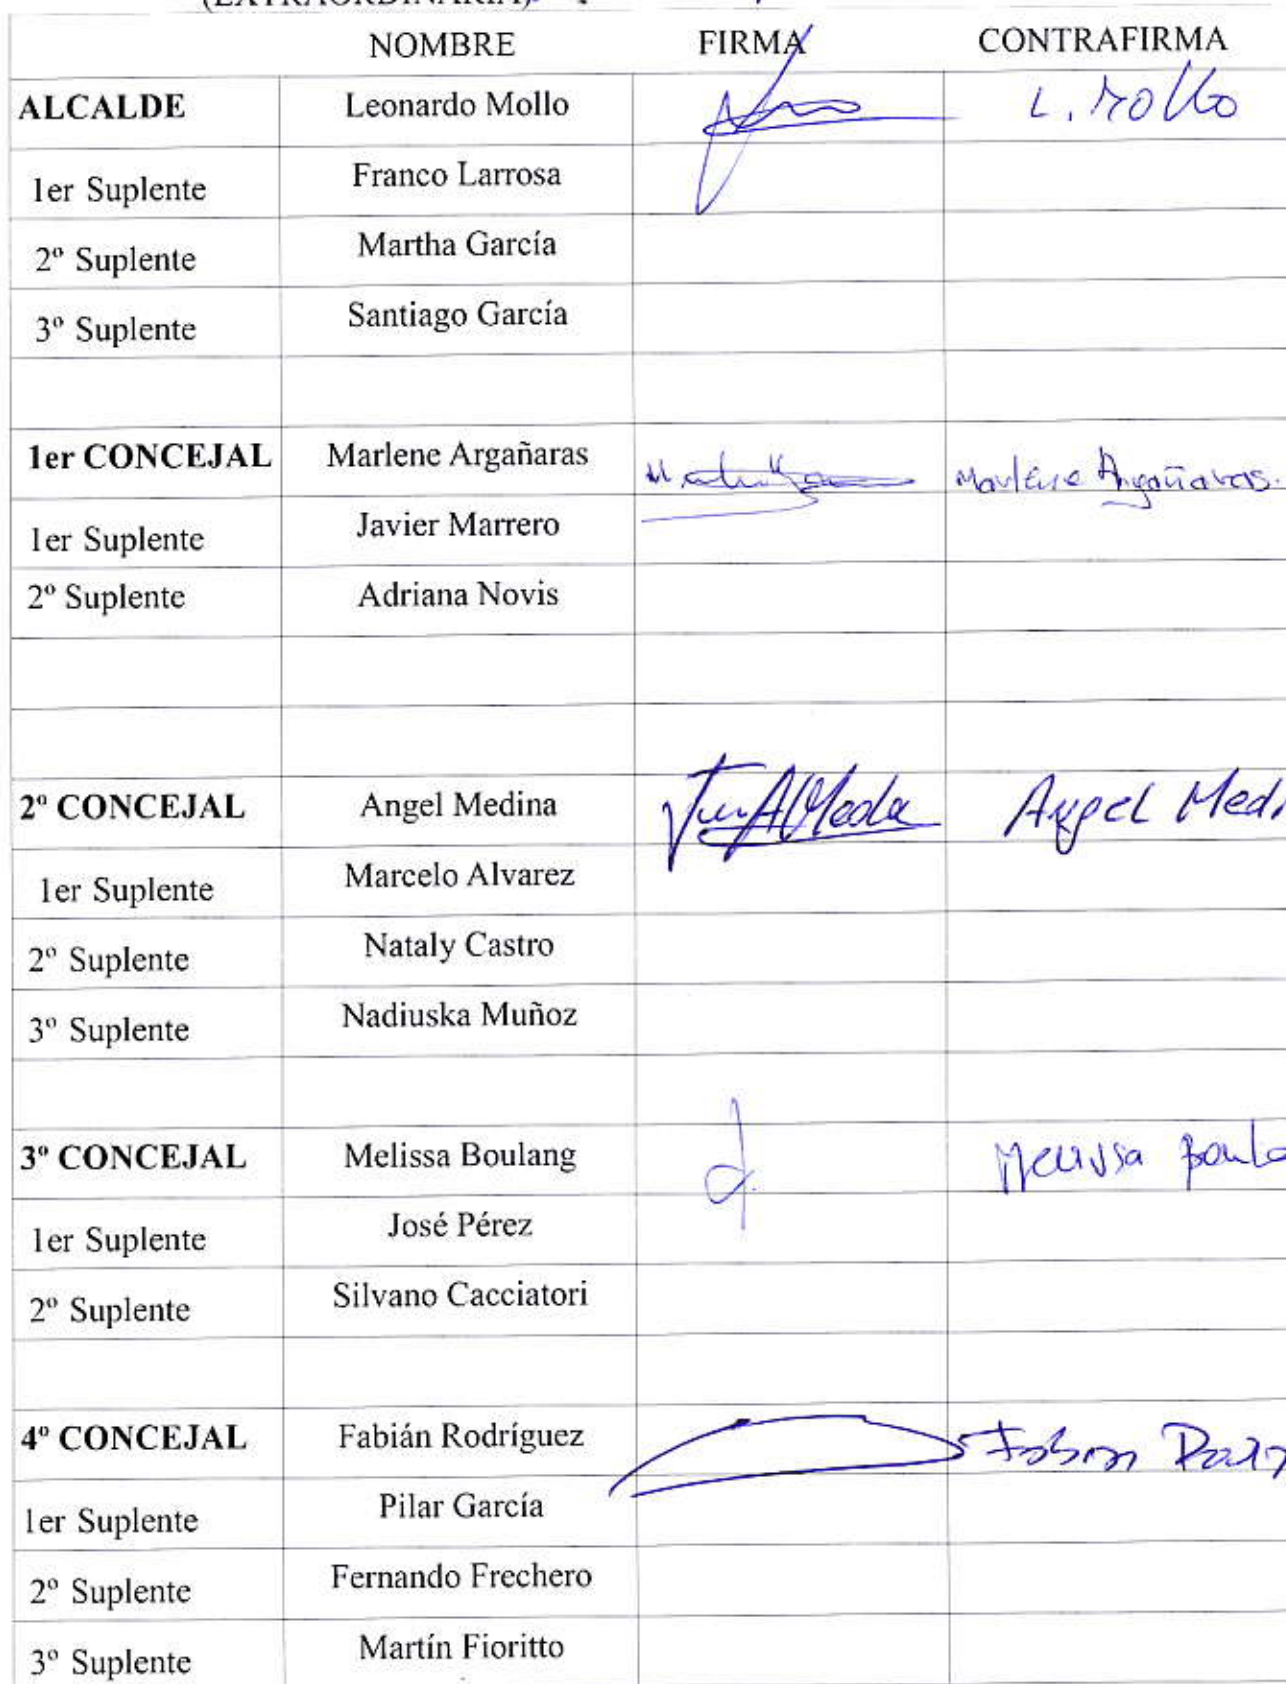 (EXTRAORDINARIA)
NOMBRE FIRMA CONTRAFIRMA
ALCALDE Leonardo Mollo L. Mollo
1er Suplente Franco Larrosa
2º Suplente Martha García
3º Suplente Santiago García
1er CONCEJAL Marlene Argañaras Marlene Argañaras.
1er Suplente Javier Marrero
2º Suplente Adriana Novis
2º CONCEJAL Angel Medina Angel Medi
1er Suplente Marcelo Alvarez
2º Suplente Nataly Castro
3º Suplente Nadiuska Muñoz
3º CONCEJAL Melissa Boulang Melissa Boula
1er Suplente José Pérez
2º Suplente Silvano Cacciatori
4º CONCEJAL Fabián Rodríguez Fabian
1er Suplente Pilar García
2º Suplente Fernando Frechero
3º Suplente Martín Fioritto